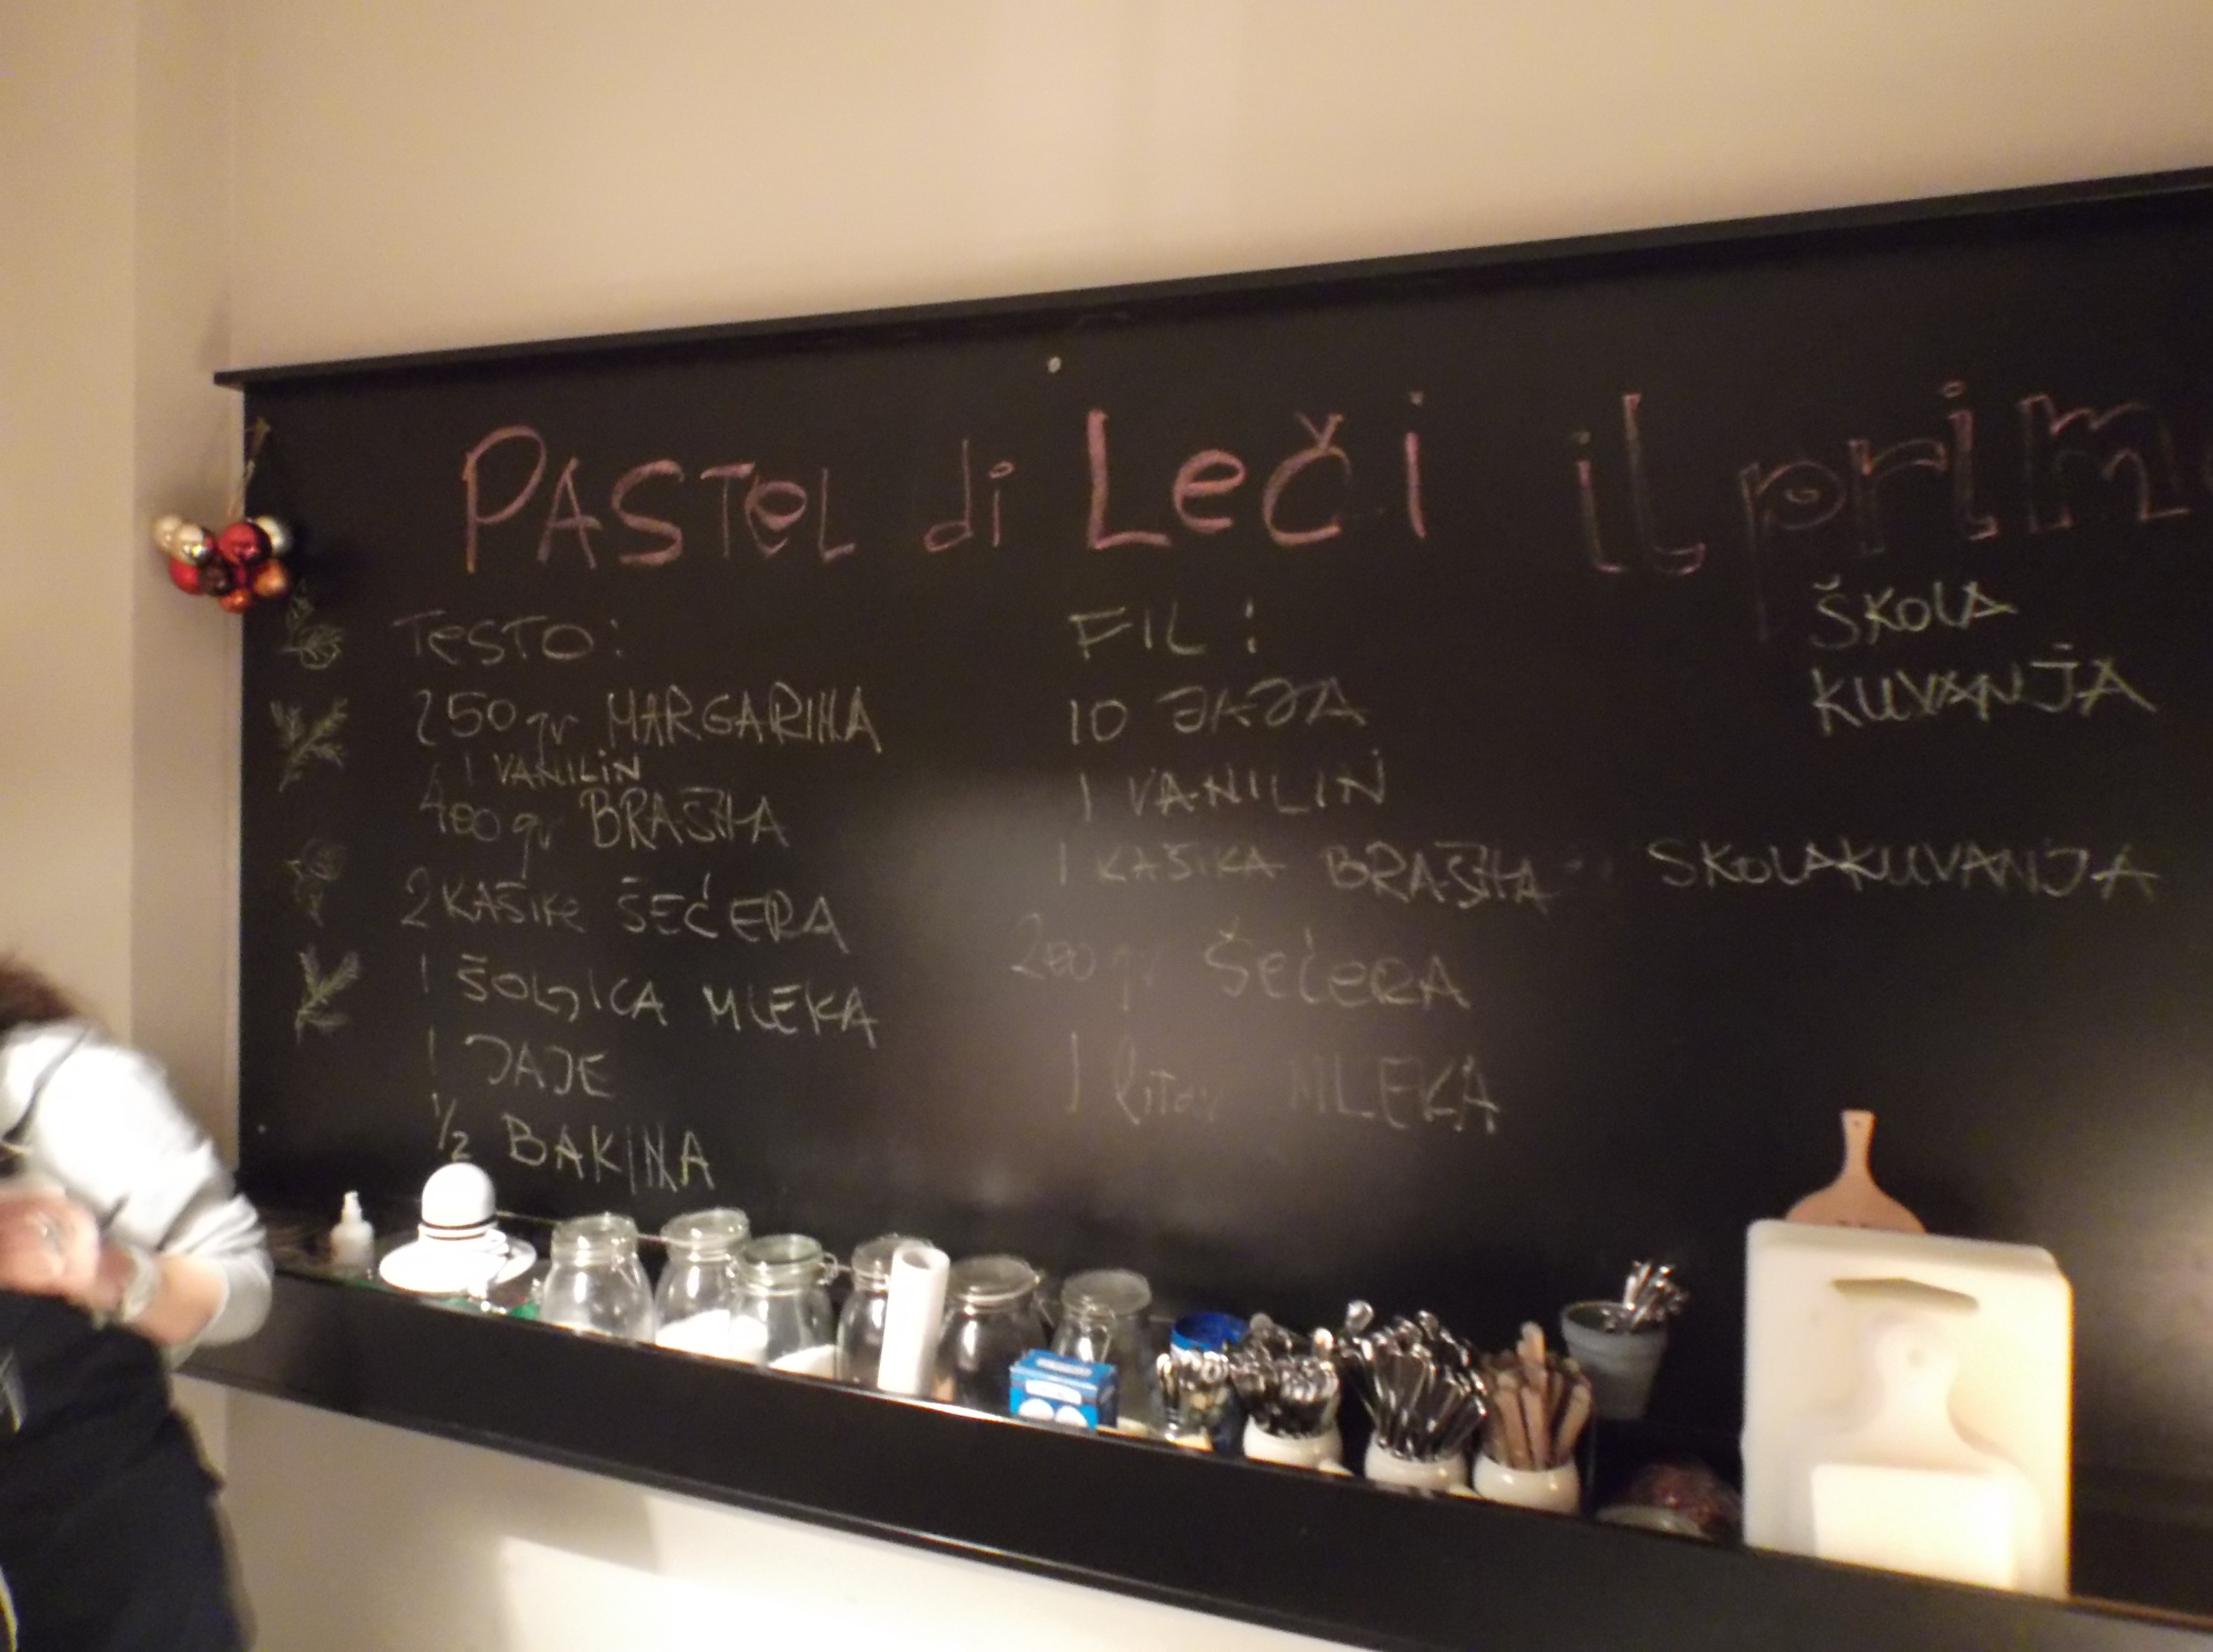 PASTEL di Leči
TESTO:
250 gr MARGARINA
1 VANILIN
400 gr BRAŠNA
2 KAŠIKE ŠEĆERA
1 ŠOLJICA MLEKA
1 JAJE
1/2 BAKINA
FIL:
10 JAJA
1 VANILIN
1 KAŠIKA BRAŠNA
200 gr ŠEĆERA
1 litar MLEKA
il prim
ŠKOLA
KUVANJA
SKOLAKUVANJA